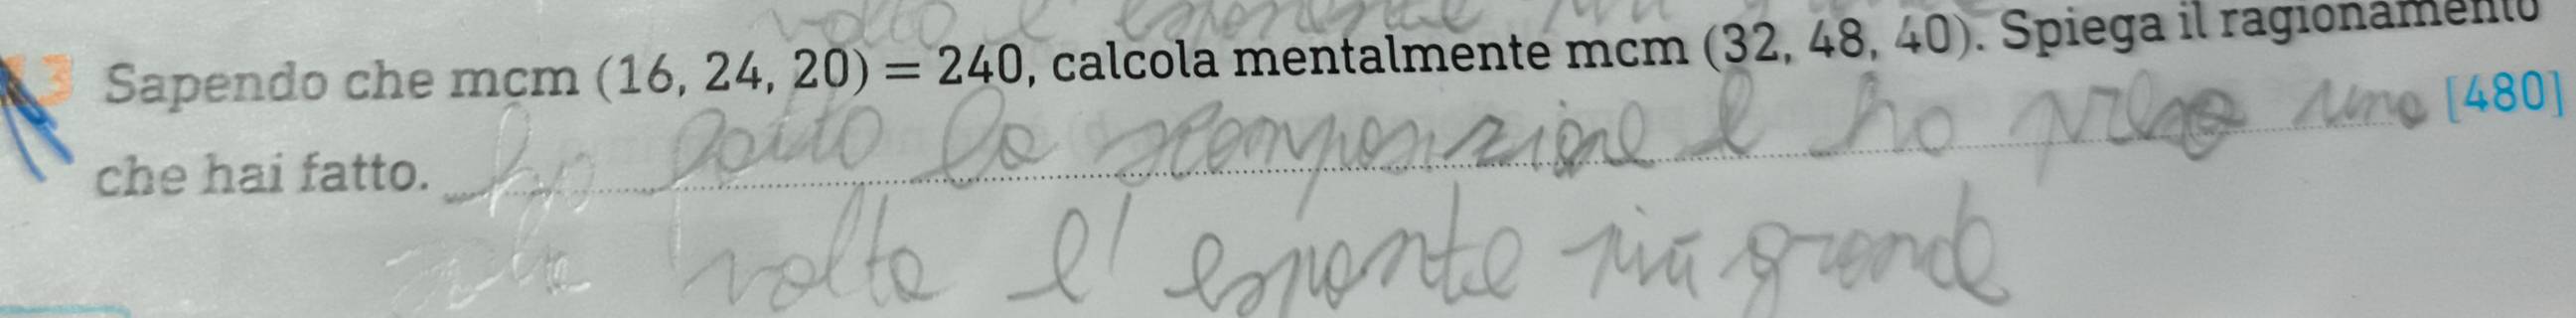 3 Sapendo che mcm (16, 24, 20) = 240, calcola mentalmente mcm (32, 48, 40). Spiega il ragionamento
che hai fatto. ho fatto la scomposizione e ho preso una [480]
volta l'esponente più grande